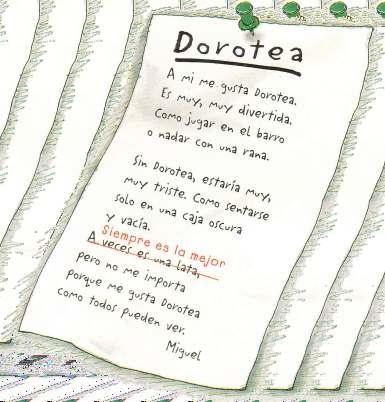 Dorotea
A mi me gusta Dorotea.
Es muy, muy divertida.
Como jugar en el barro
o nadar con una rana.
Sin Dorotea, estaría muy,
muy triste. Como sentarse
solo en una caja oscura
y vacía.
Siempre es la mejor
A veces es una lata,
pero no me importa
porque me gusta Dorotea
como todos pueden ver.
Miguel